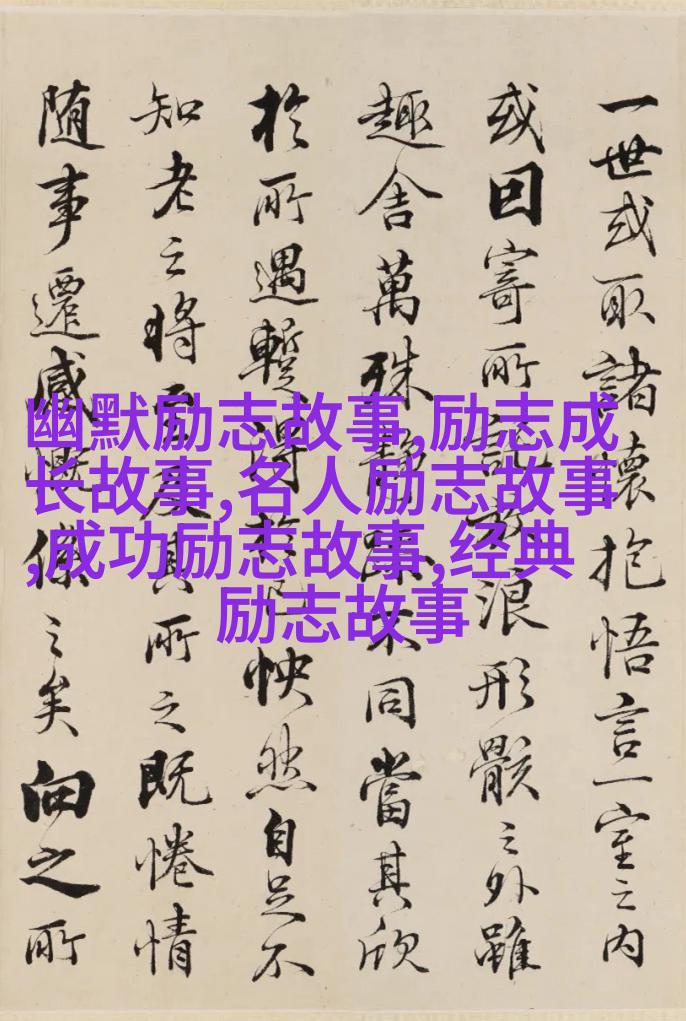 一世或取諸懷抱悟言一室之內
或因寄所託放浪形骸之外雖
趣舍萬殊靜躁不同當其欣
於所遇暫得於己怏然自足不
知老之將至及其所之既惓情
随事遷感慨係之矣向之所
幽默励志故事,励志成
长故事,名人励志故事
,成功励志故事,经典
励志故事